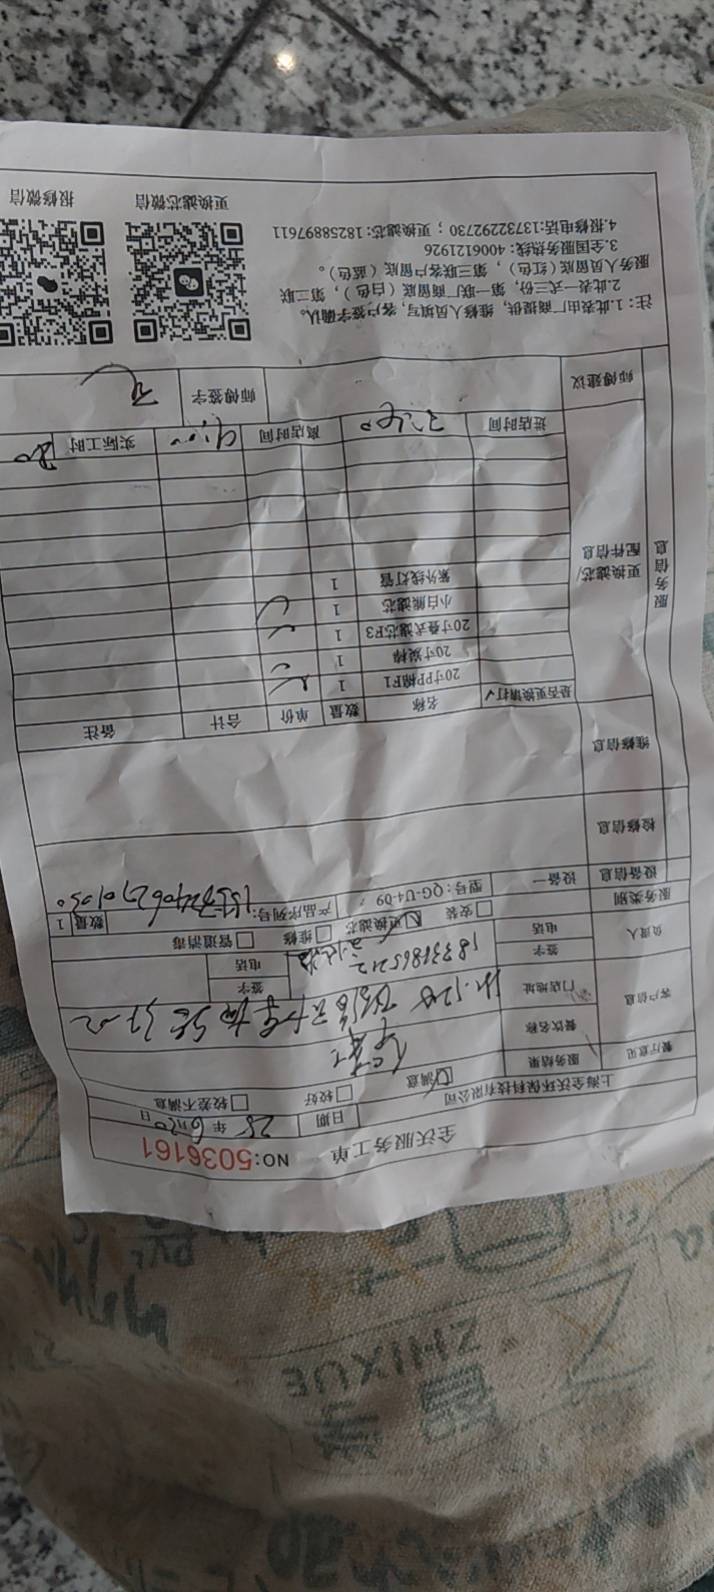 全沃服务工单
NO:5036161
上海全沃环保科技有限公司
日期 25 年 6月20日
餐厅意见 服务结果 满意 较好 较差不满意
客户信息 餐饮名称
门店地址
负责人 签字 签字
电话 电话
服务类别 安装 更换滤芯 维修 管道消毒
设备信息 设备一 型号:QG-U4-09 产品序列号: 数量 1
检修信息
维修信息
服务信息
更换滤芯/配件信息
是否更换请打√ 名称 数量 单价 合计 备注
20寸PP棉F1 1
20寸炭棒 1
20寸叠式滤芯F3 1
小白熊滤芯 1
紫外线灯管 1
进店时间 离店时间 实际工时
师傅建议 师傅签字
注:1.此表由厂商提供,维修人员填写,客户签字确认。
2.此表一式三份,第一联厂商留底(白色),第二联
服务人员留底(红色),第三联客户留底(蓝色)。
3.全国服务热线:4006121926
4.报修电话:13732292730;更换滤芯:18258897611
更换滤芯微信
报修微信
智学
ZHIXUE